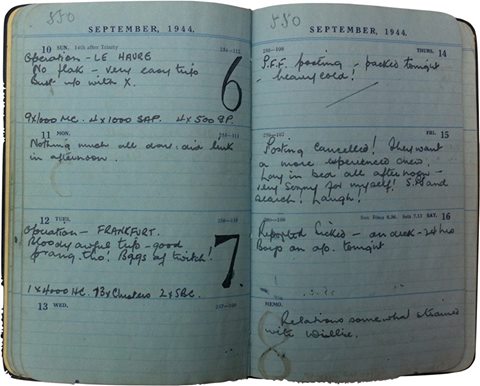 880
SEPTEMBER, 1944.
10 SUN. 14th after Trinity
Operation - LE HAVRE
No flak - very easy trip
Bust up with X.
6
9x1000 MC. 4x1000 SAP. 4x500 GP.
11 MON.
Nothing much all day. did link
in afternoon.
12 TUES.
Operation - FRANKFURT.
Bloody awful trip - good
prang tho! Bags of twitch!
7.
1x4000 HC. 13xClusters 2xSBC.
13 WED.
880
SEPTEMBER, 1944.
THURS. 14
P.F.F. posting - packed tonight
- heavy cold!
FRI. 15
Posting cancelled! They want
a more experienced crew.
Lay in bed all afternoon -
very sorry for myself! S. and
search. Laugh!
SAT. 16
Reported sick - 24 hrs
Boys on op. tonight
MEMO.
Relations somewhat strained
with Willie.
8